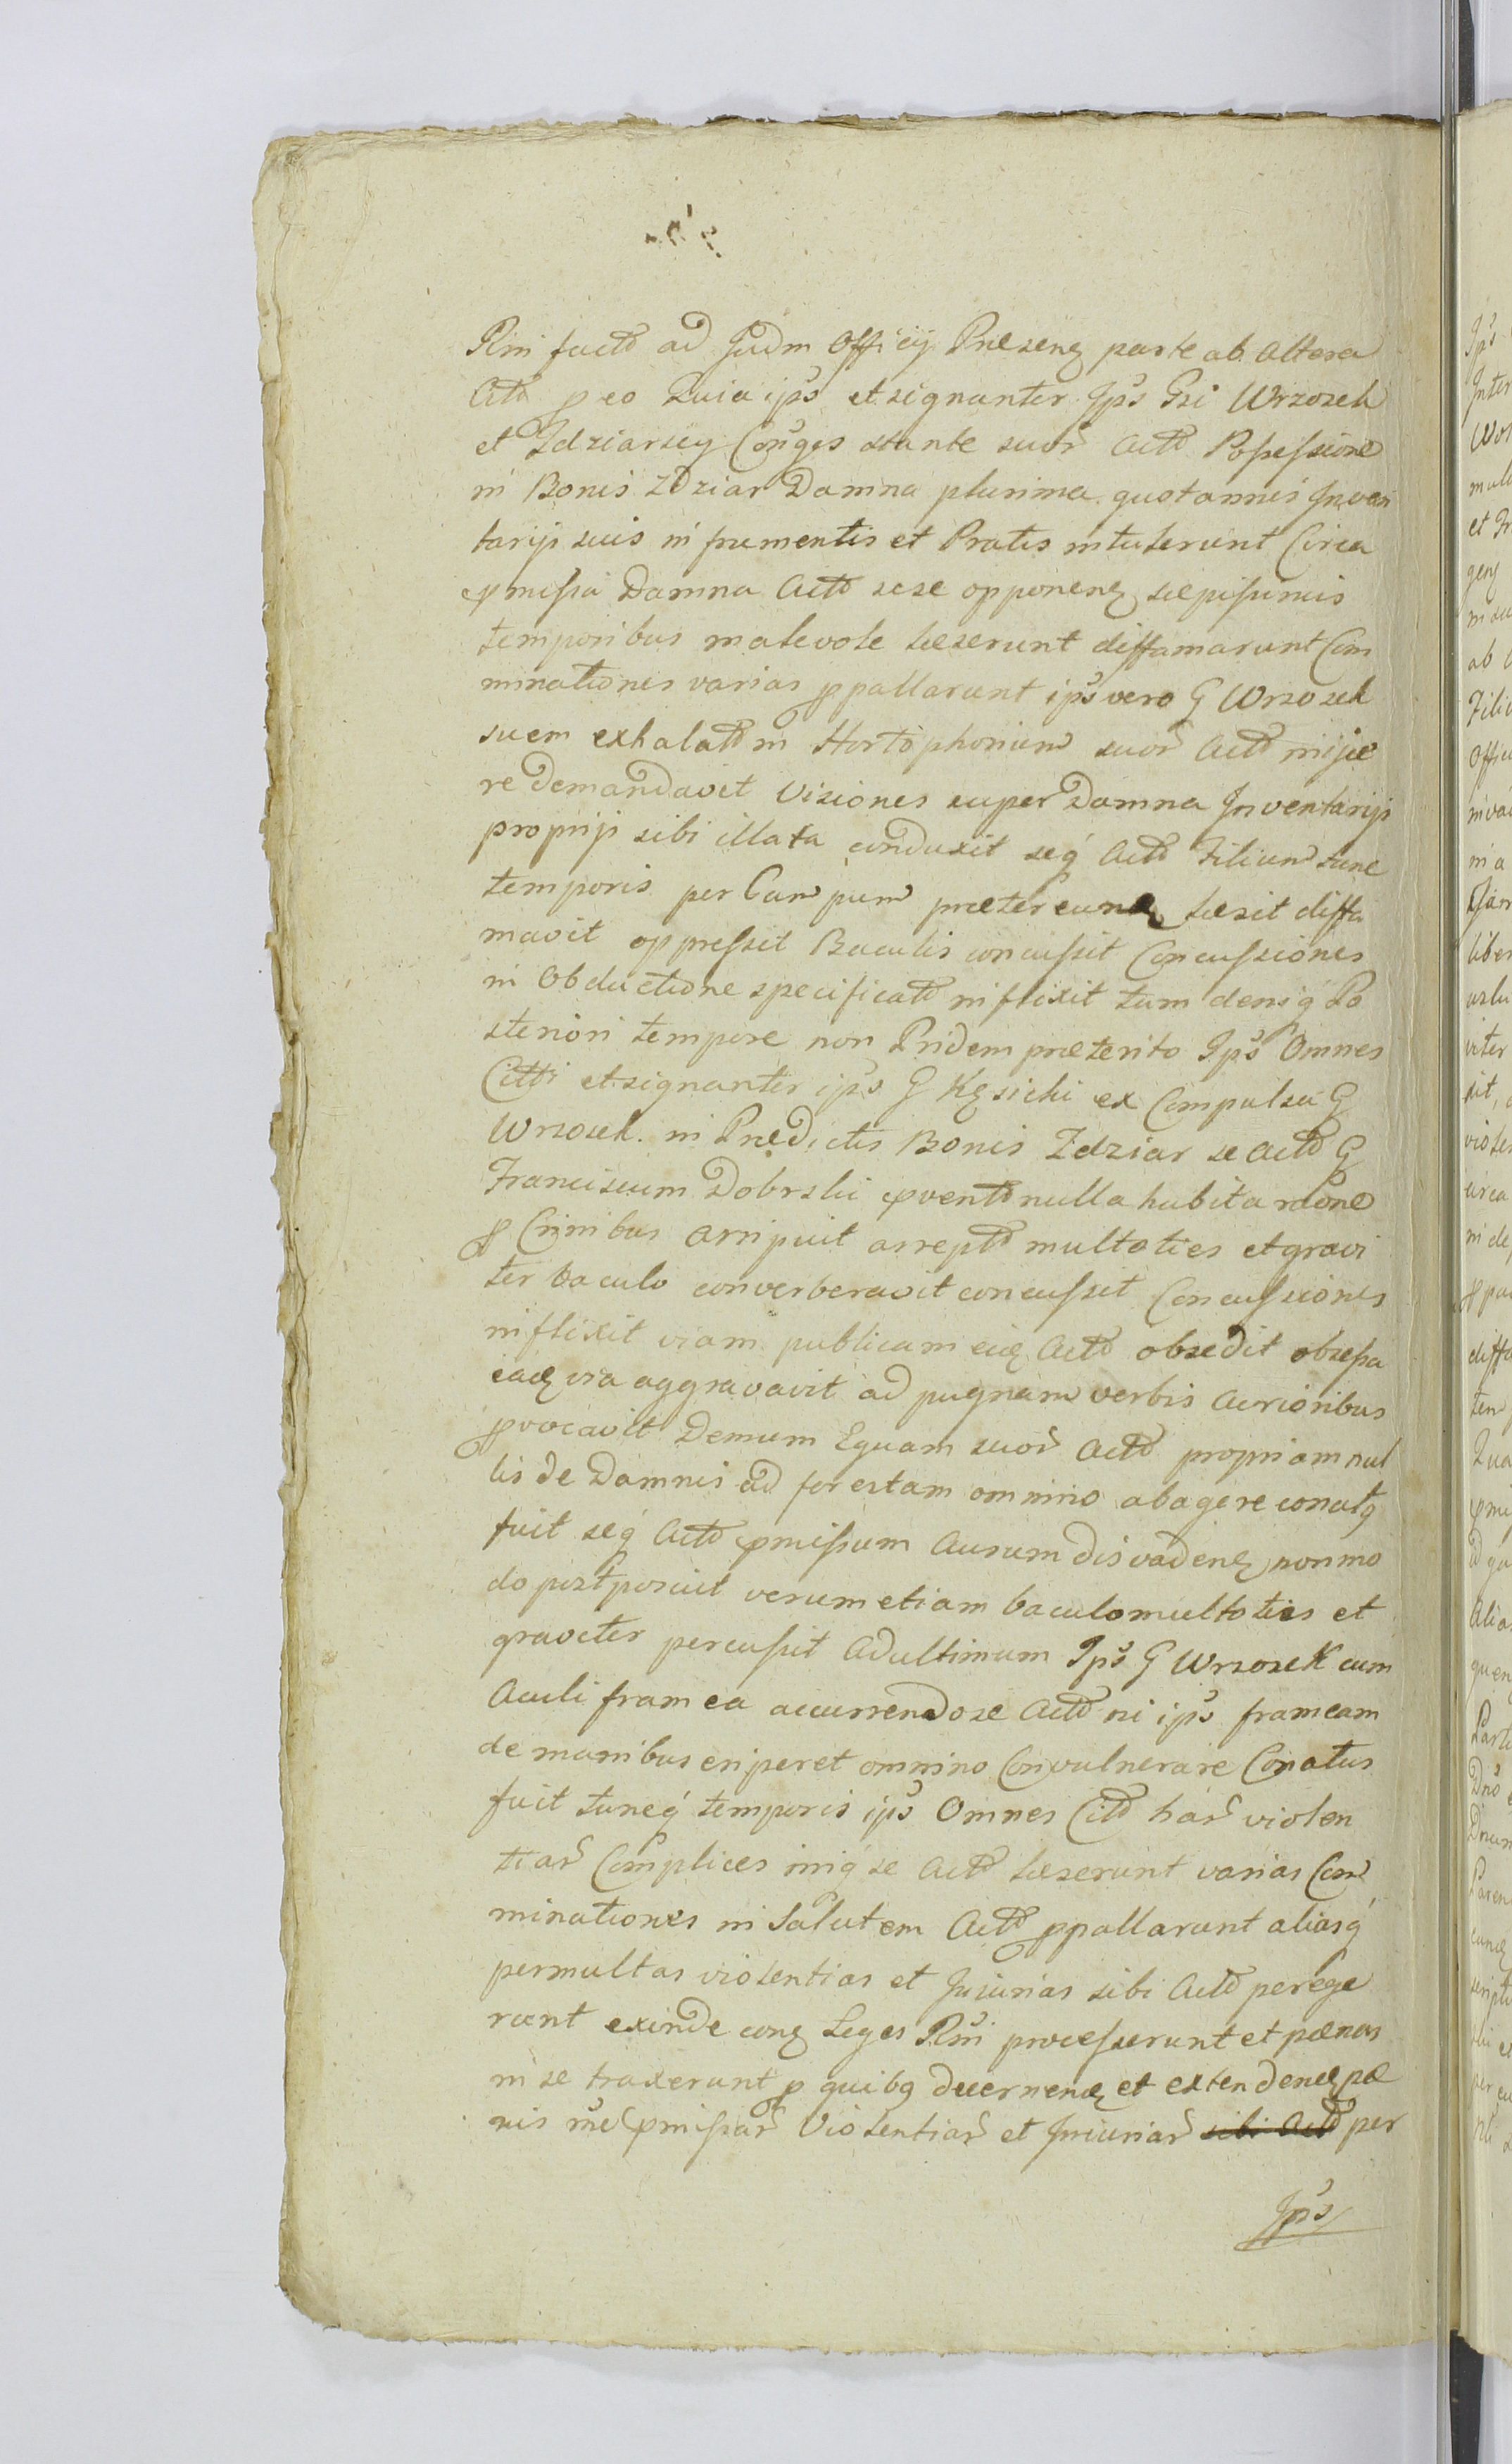 Rni factã ad Judm Officij Præsenȩ parte ab. Altera
Actõ p eo Quia ips et signanter Ips Gsi Wrzosek
et Zdziarscy Conges stante suor Actõ Possessione
in Bonis Zdziar Damna plurima quotannis Inven
tarijs suis in frumentis et Pratis intulerunt Circa
pmissa Damna Actõ sese opponenȩ sæpissimis
temporibus malevole læserunt diffamarunt Com
minationes varias ppallarunt ips vero G Wrzosek
suem exhalatõ in Hortõ phonium suor Actõ inijce
re demandavit Visiones super Damna Inventarijs
proprijs sibi illata conduxit seq Actõ Filium tunc
temporis per Campum prætereunȩ læsit diffa
mavit oppressit Baculis concussit Concussiones
in Obductione specificatõ inflixit tum deniq Po
steriori tempore non Pridem præterito Ips Omnes
Citti et signanter ips G Kęsicki ex Compulsu G
Wrzosek. in Prædictis Bonis Zdziar se Actõ G
Franciscum Dobrski pventõ nulla habita raõne
p Crinibus arripuit arreptõ multoties et gravi
ter baculo converberavit concussit Concussiones
inflixit viam publicam eiȩ Actõ obsedit obsessa
eaȩ via aggravavit ad pugnam verbis acrioribus
pvocavit Demum Equam suor Actõ propriam nul
lis de Damnis ad forestam omnino abagere conatq
fuit seq Actõ pmissum Ausum disvadenȩ non mo
do postposuit verum etiam baculo multoties et
graviter percussit Ad ultimum Ips G Wrzosek cum
Aculi framea accurrendo se Actõ ni ips frameam
de manibus eriperet omnino Convulnerare Conatus
fuit tuncq temporis ips Omnes Citõ har violen
tiar Complices iniq se Actõ læserunt varias Com
minationes in Salutem Actõ ppallarunt aliasq
permultas violentias et Injurias sibi Actõ perege
runt exinde conȩ Leges Rni processerunt et pænas
in se traxerunt p quibq decernenȩ et extendenȩ pæ
nis rne pmissar Violentiar et Iniuriar sibi Actõ per
Ips